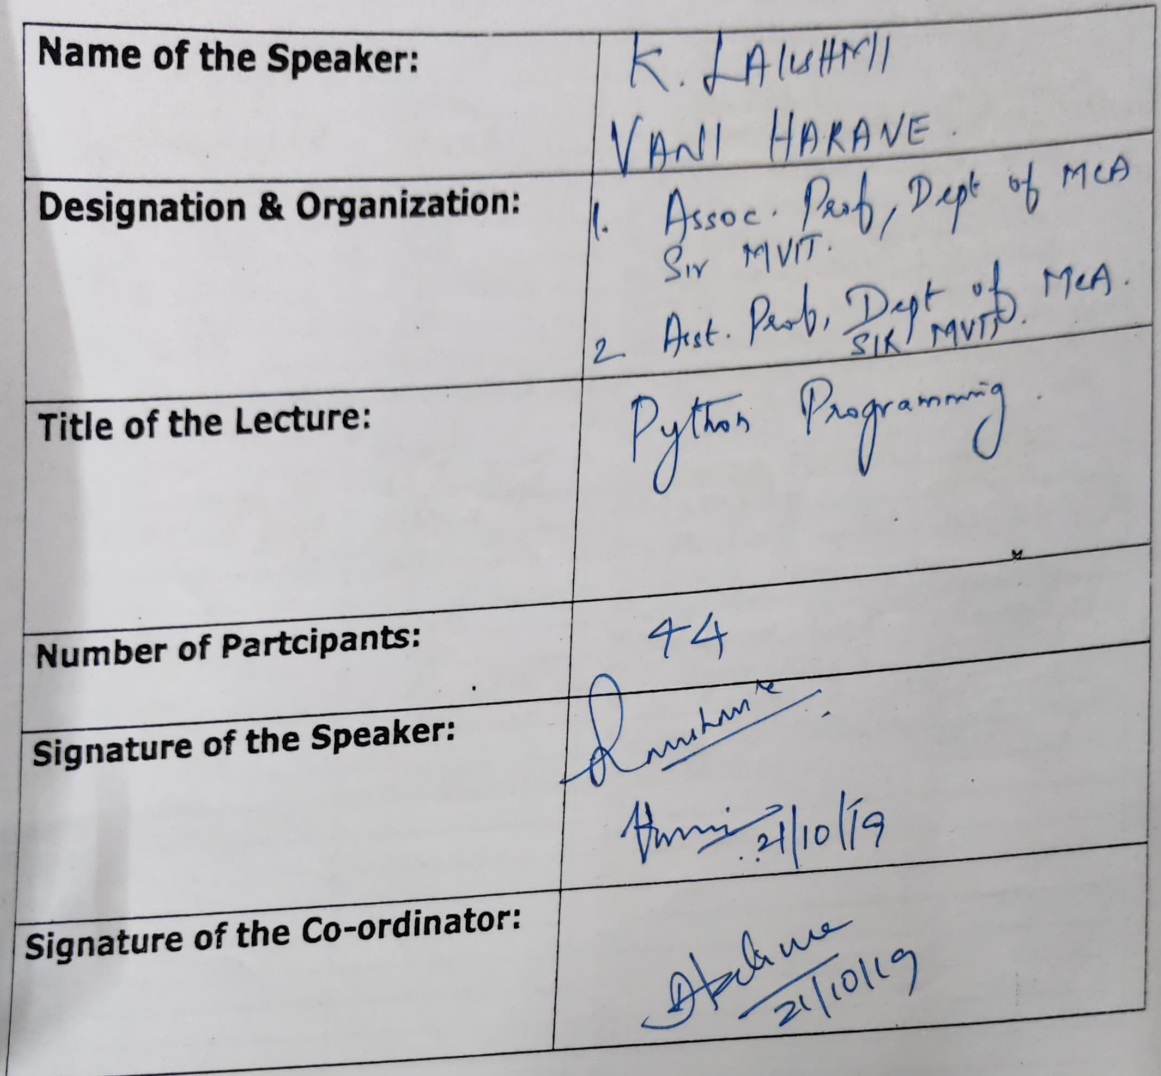 Name of the Speaker:
K. LAKSHMI
VANI HARANE.
Designation & Organization:
1. Assoc. Prof, Dept of MCA
Sir MVIT.
2 Asst. Prof, Dept of MCA.
SIR MVIT.
Title of the Lecture:
Python Programming.
Number of Partcipants:
44
Signature of the Speaker:
21/10/19
Signature of the Co-ordinator:
21/10/19